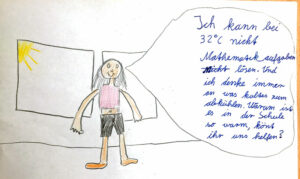 Ich kann bei
32°C nicht
Mathematik aufgaben
nicht lösen. Und
ich denke immer
an was kaltes zum
abkühlen. Warum ist
es in der Schule
so warm, könt
ihr uns helfen?